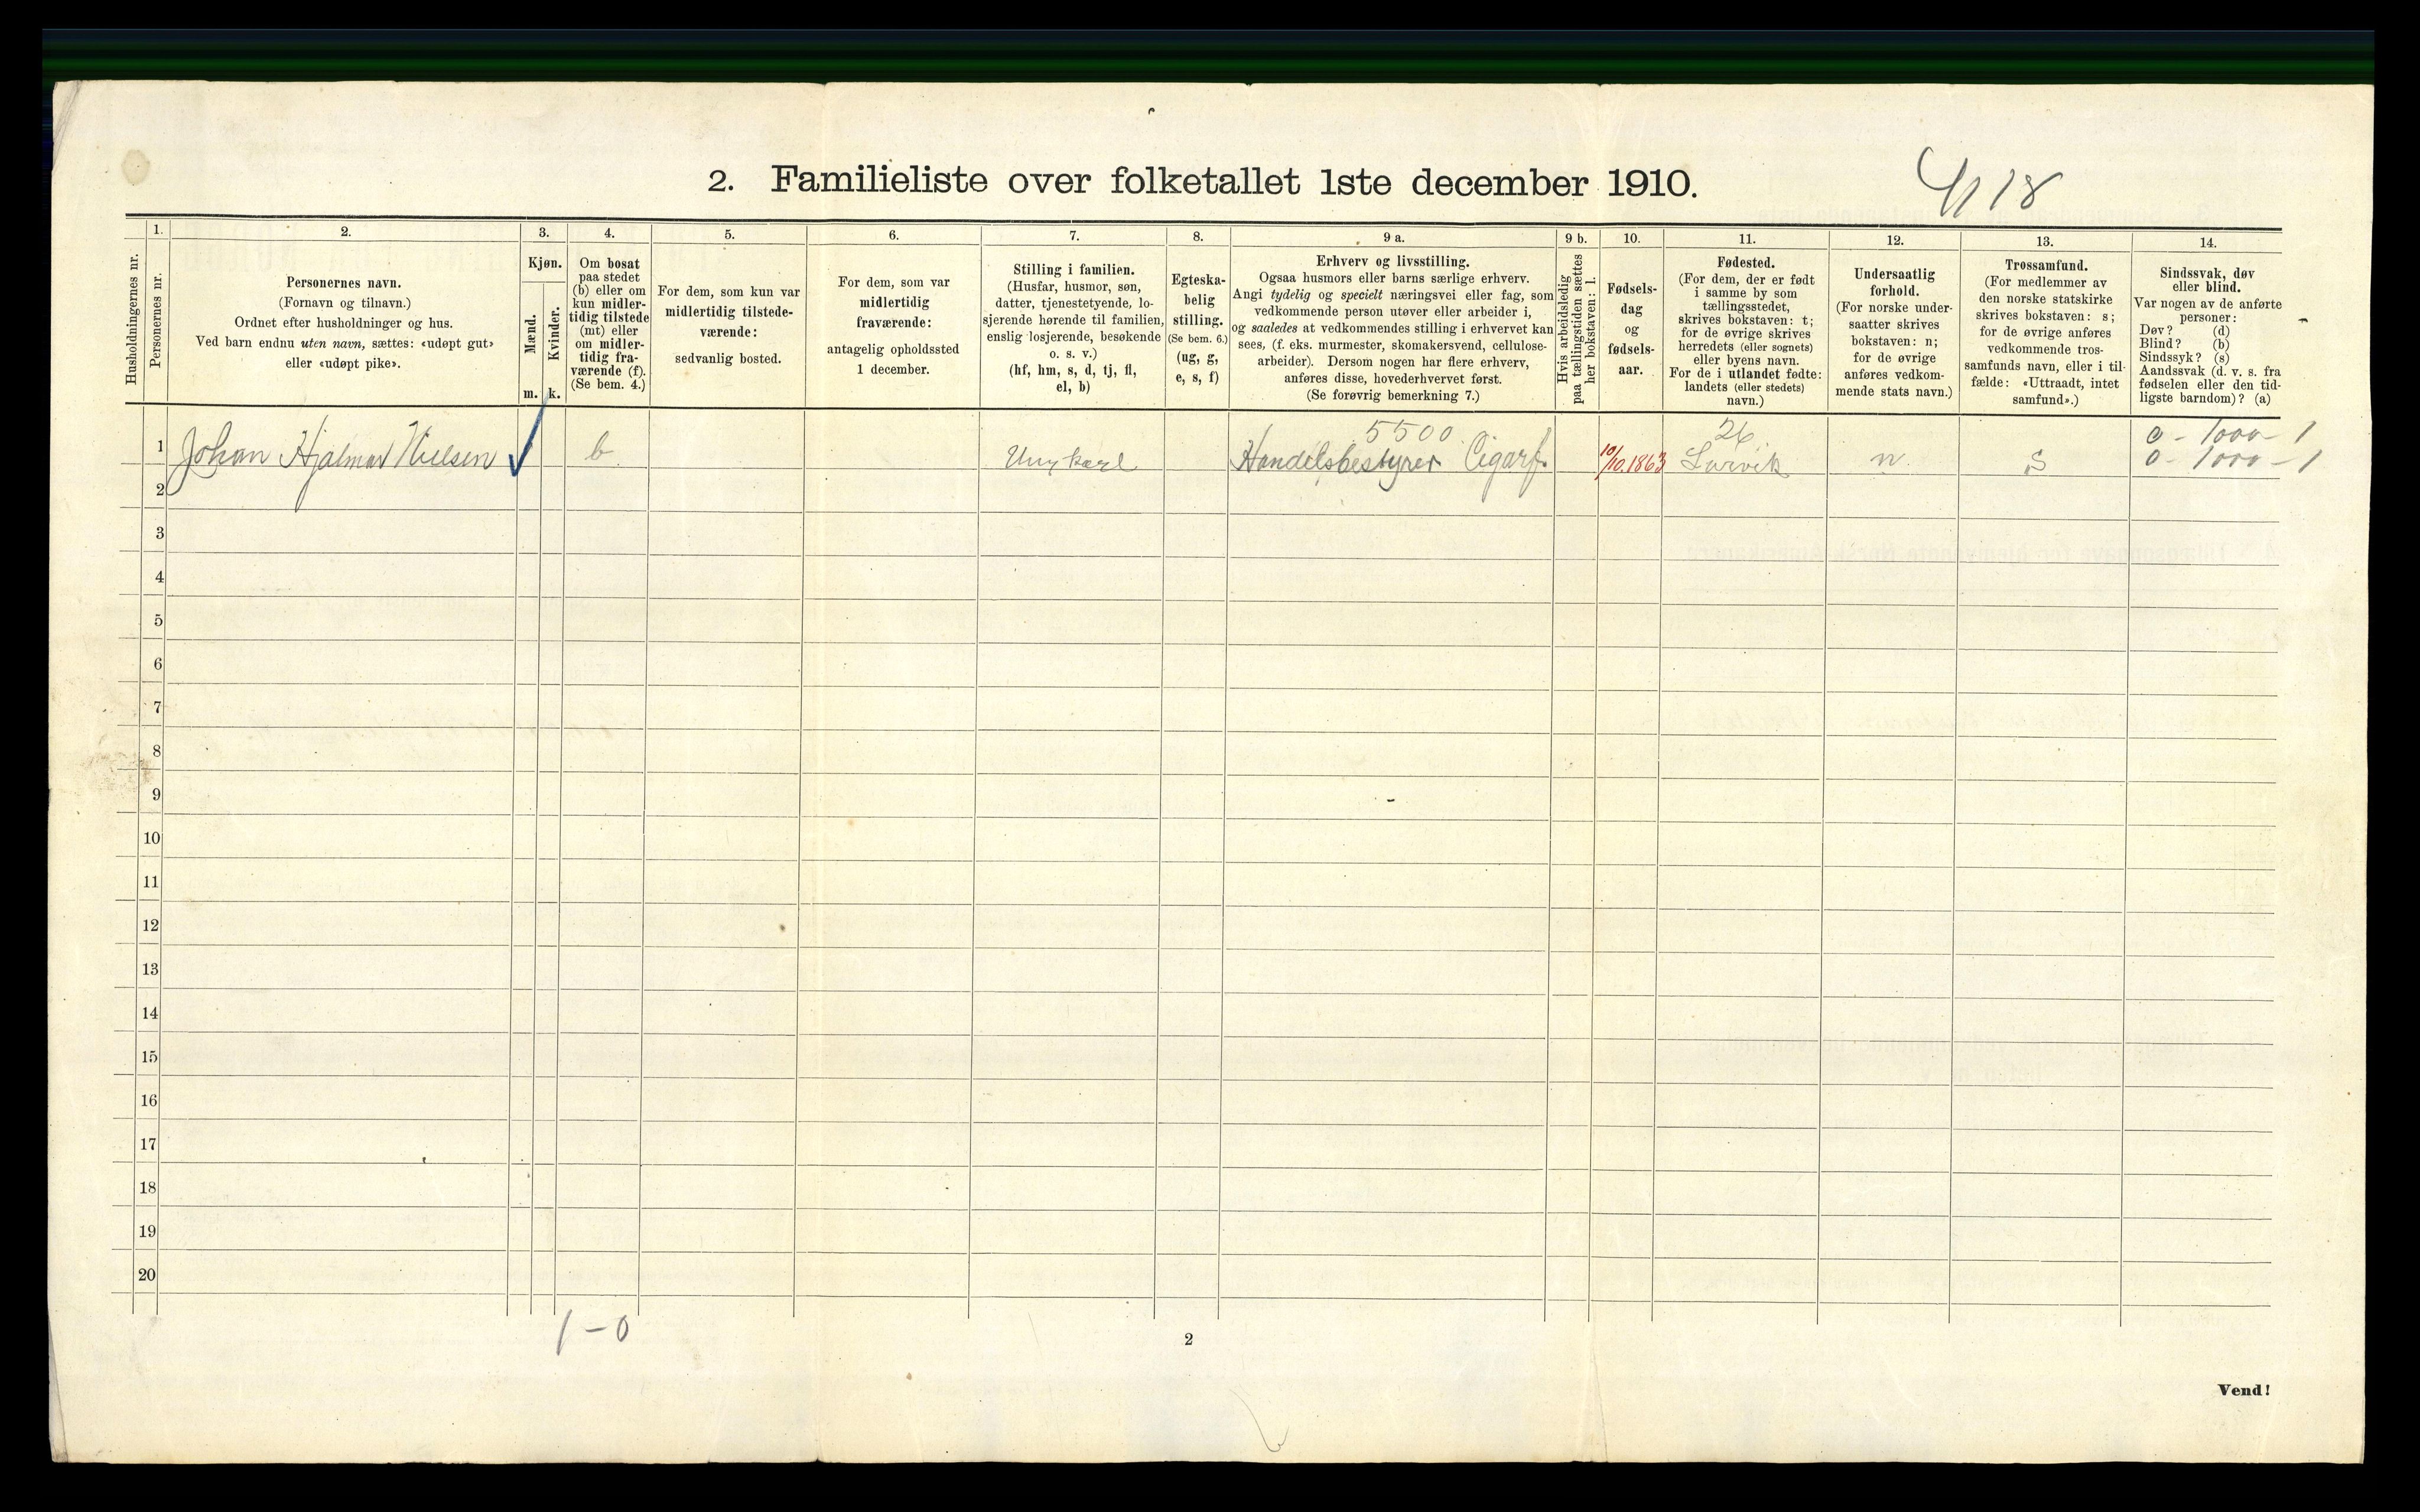 2. Familieliste over folketallet 1ste december 1910.
1. 2. 3. 4. 5. 6. 7. 8. 9 a. 9 b. 10. 11. 12. 13. 14.
Husholdningernes nr.
Personernes nr.
Personernes navn.
(Fornavn og tilnavn.)
Ordnet efter husholdninger og hus.
Ved barn endnu uten navn, sættes: «udøpt gut»
eller «udøpt pike».
Kjøn.
Mænd.
Kvinder.
m. k.
Om bosat
paa stedet
(b) eller om
kun midler-
tidig tilstede
(mt) eller
om midler-
tidig fra-
værende (f).
(Se bem. 4.)
For dem, som kun var
midlertidig tilstede-
værende:
sedvanlig bosted.
For dem, som var
midlertidig
fraværende:
antagelig opholdssted
1 december.
Stilling i familien.
(Husfar, husmor, søn,
datter, tjenestetyende, lo-
sjerende hørende til familien,
enslig losjerende, besøkende
o. s. v.)
(hf, hm, s, d, tj, fl,
el, b)
Egteska-
belig
stilling.
(Se bem. 6.)
(ug, g,
e, s, f)
Erhverv og livsstilling.
Ogsaa husmors eller barns særlige erhverv.
Angi tydelig og specielt næringsvei eller fag, som
vedkommende person utøver eller arbeider i,
og saaledes at vedkommendes stilling i erhvervet kan
sees, (f. eks. murmester, skomakersvend, cellulose-
arbeider). Dersom nogen har flere erhverv,
anføres disse, hovederhvervet først.
(Se forøvrig bemerkning 7.)
Hvis arbeidsledig
paa tællingstiden sættes
her bokstaven: l.
Fødsels-
dag
og
fødsels-
aar.
Fødested.
(For dem, der er født
i samme by som
tællingsstedet,
skrives bokstaven: t;
for de øvrige skrives
herredets (eller sognets)
eller byens navn.
For de i utlandet fødte:
landets (eller stedets)
navn.)
Undersaatlig
forhold.
(For norske under-
saatter skrives
bokstaven: n;
for de øvrige
anføres vedkom-
mende stats navn.)
Trossamfund.
(For medlemmer av
den norske statskirke
skrives bokstaven: s;
for de øvrige anføres
vedkommende tros-
samfunds navn, eller i til-
fælde: «Uttraadt, intet
samfund».)
Sindssvak, døv
eller blind.
Var nogen av de anførte
personer:
Døv? (d)
Blind? (b)
Sindssyk? (s)
Aandssvak (d. v. s. fra
fødselen eller den tid-
ligste barndom)? (a)
5500 26 0 - 1000 - 1
1 Johan Hjalmar Nielsen b Ungkarl Handelsbestyrer Cigarf. 10/10.1863 Larvik n. s 0 - 1000 - 1
2
3
4
5
6
7
8
9
10
11
12
13
14
15
16
17
18
19
20
1 - 0
2
Vend!